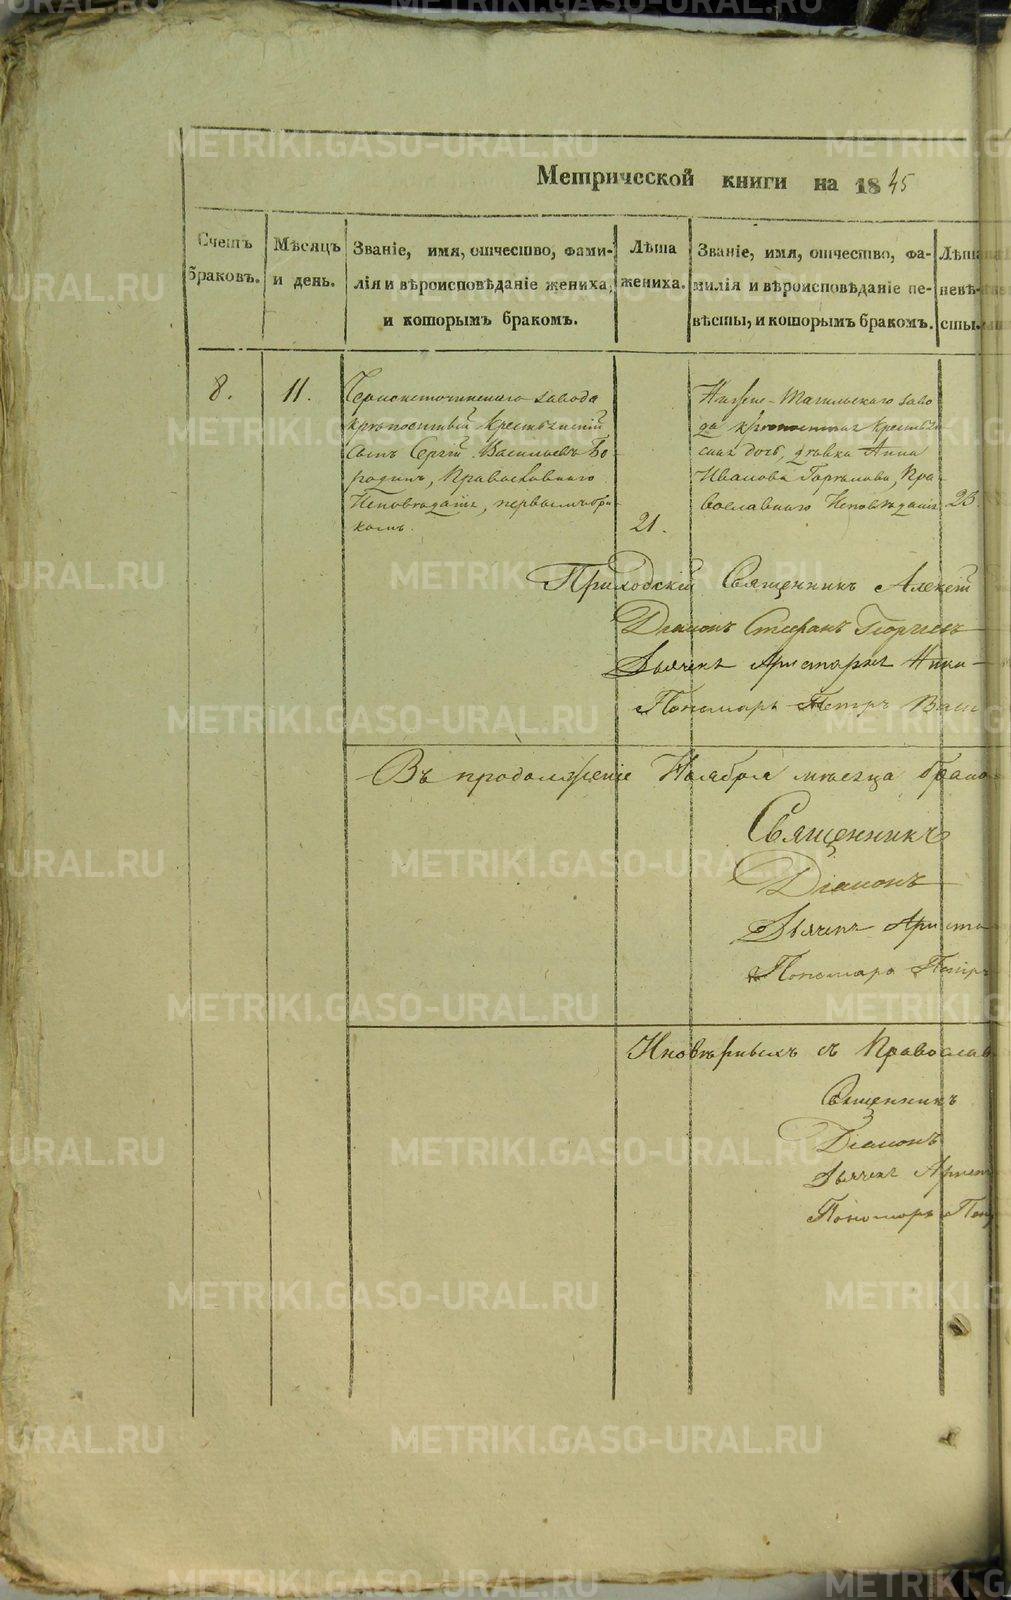 Метрической книги на 1845
Счетъ браковъ.
Мѣсяцъ и день.
Званіе, имя, отчество, фами-
лія и вѣроисповѣданіе жениха,
и которымъ бракомъ.
Лѣта жениха.
Званіе, имя, отчество, фа-
милія и вѣроисповѣданіе не-
вѣсты, и которымъ бракомъ.
Лѣта
невѣ-
сты.
8.
11.
Черноисточинскаго завода
крѣпостный Крестьянскій
сынъ Сергій Васильевъ Бо-
родинъ, Православнаго
Исповѣданія, первымъ бра-
комъ.
21.
Нижне-Тагильскаго заво
да крѣпостная Крестьян
ская дочь, дѣвка Анна
Иванова, Пра-
вославнаго Исповѣданія
23.
Приходскій Священникъ Алексѣй
Діаконъ Стефанъ Георгіев
Дьячекъ Аристархъ Ники
Пономарь Петръ Васи
Въ продолженіе Ноября мѣсяца брако
Священникъ
Діаконъ
Дьячекъ Ариста
Пономарь Петръ
Иновѣрныхъ съ Православ
Священникъ
Діаконъ
Дьячекъ Арист
Пономарь Пет
METRIKI.GASO-URAL.RU